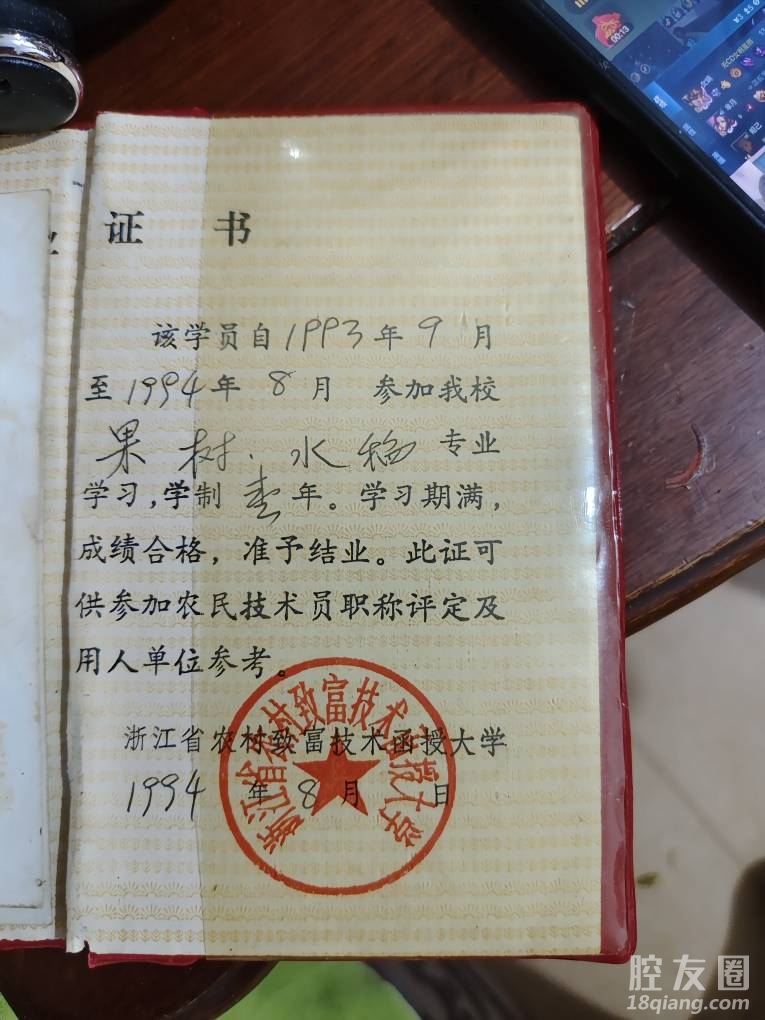 证 书
该学员自1993年9月
至1994年8月 参加我校
果树.水稻专业
学习,学制壹年。学习期满,
成绩合格,准予结业。此证可
供参加农民技术员职称评定及
用人单位参考。
浙江省农村致富技术函授大学
1994年8月 日
浙江省农村致富技术函授大学
00:13
腔友圈
18qiang.com